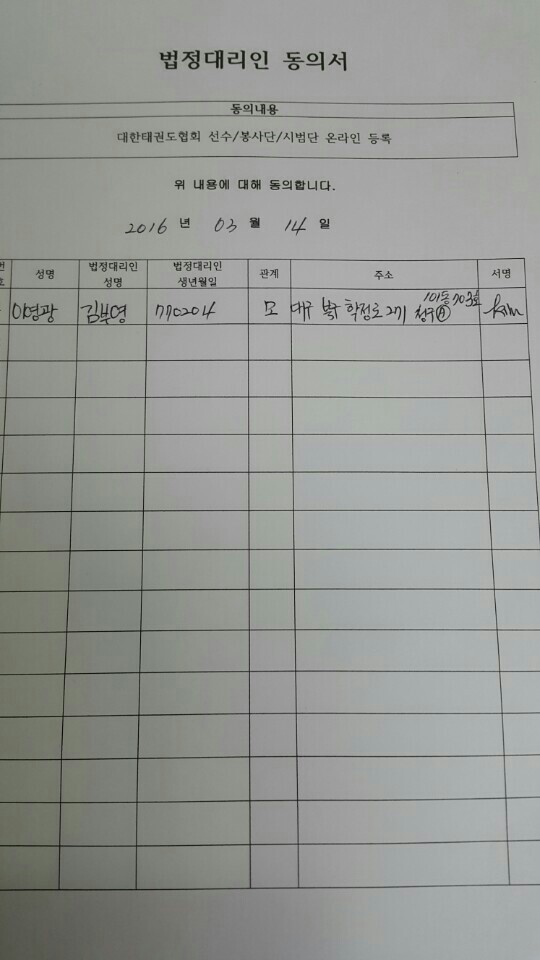 법정대리인 동의서
동의내용
대한태권도협회 선수/봉사단/시범단 온라인 등록
위 내용에 대해 동의합니다.
2016 년 03 월 14 일
번호 성명 법정대리인 성명 법정대리인 생년월일 관계 주소 서명
이영광 김부영 770204 모 대구 북구 학정로 27길 청구Ⓐ 101동 703호 kim